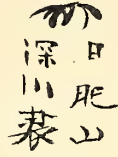 日肥山
深川製